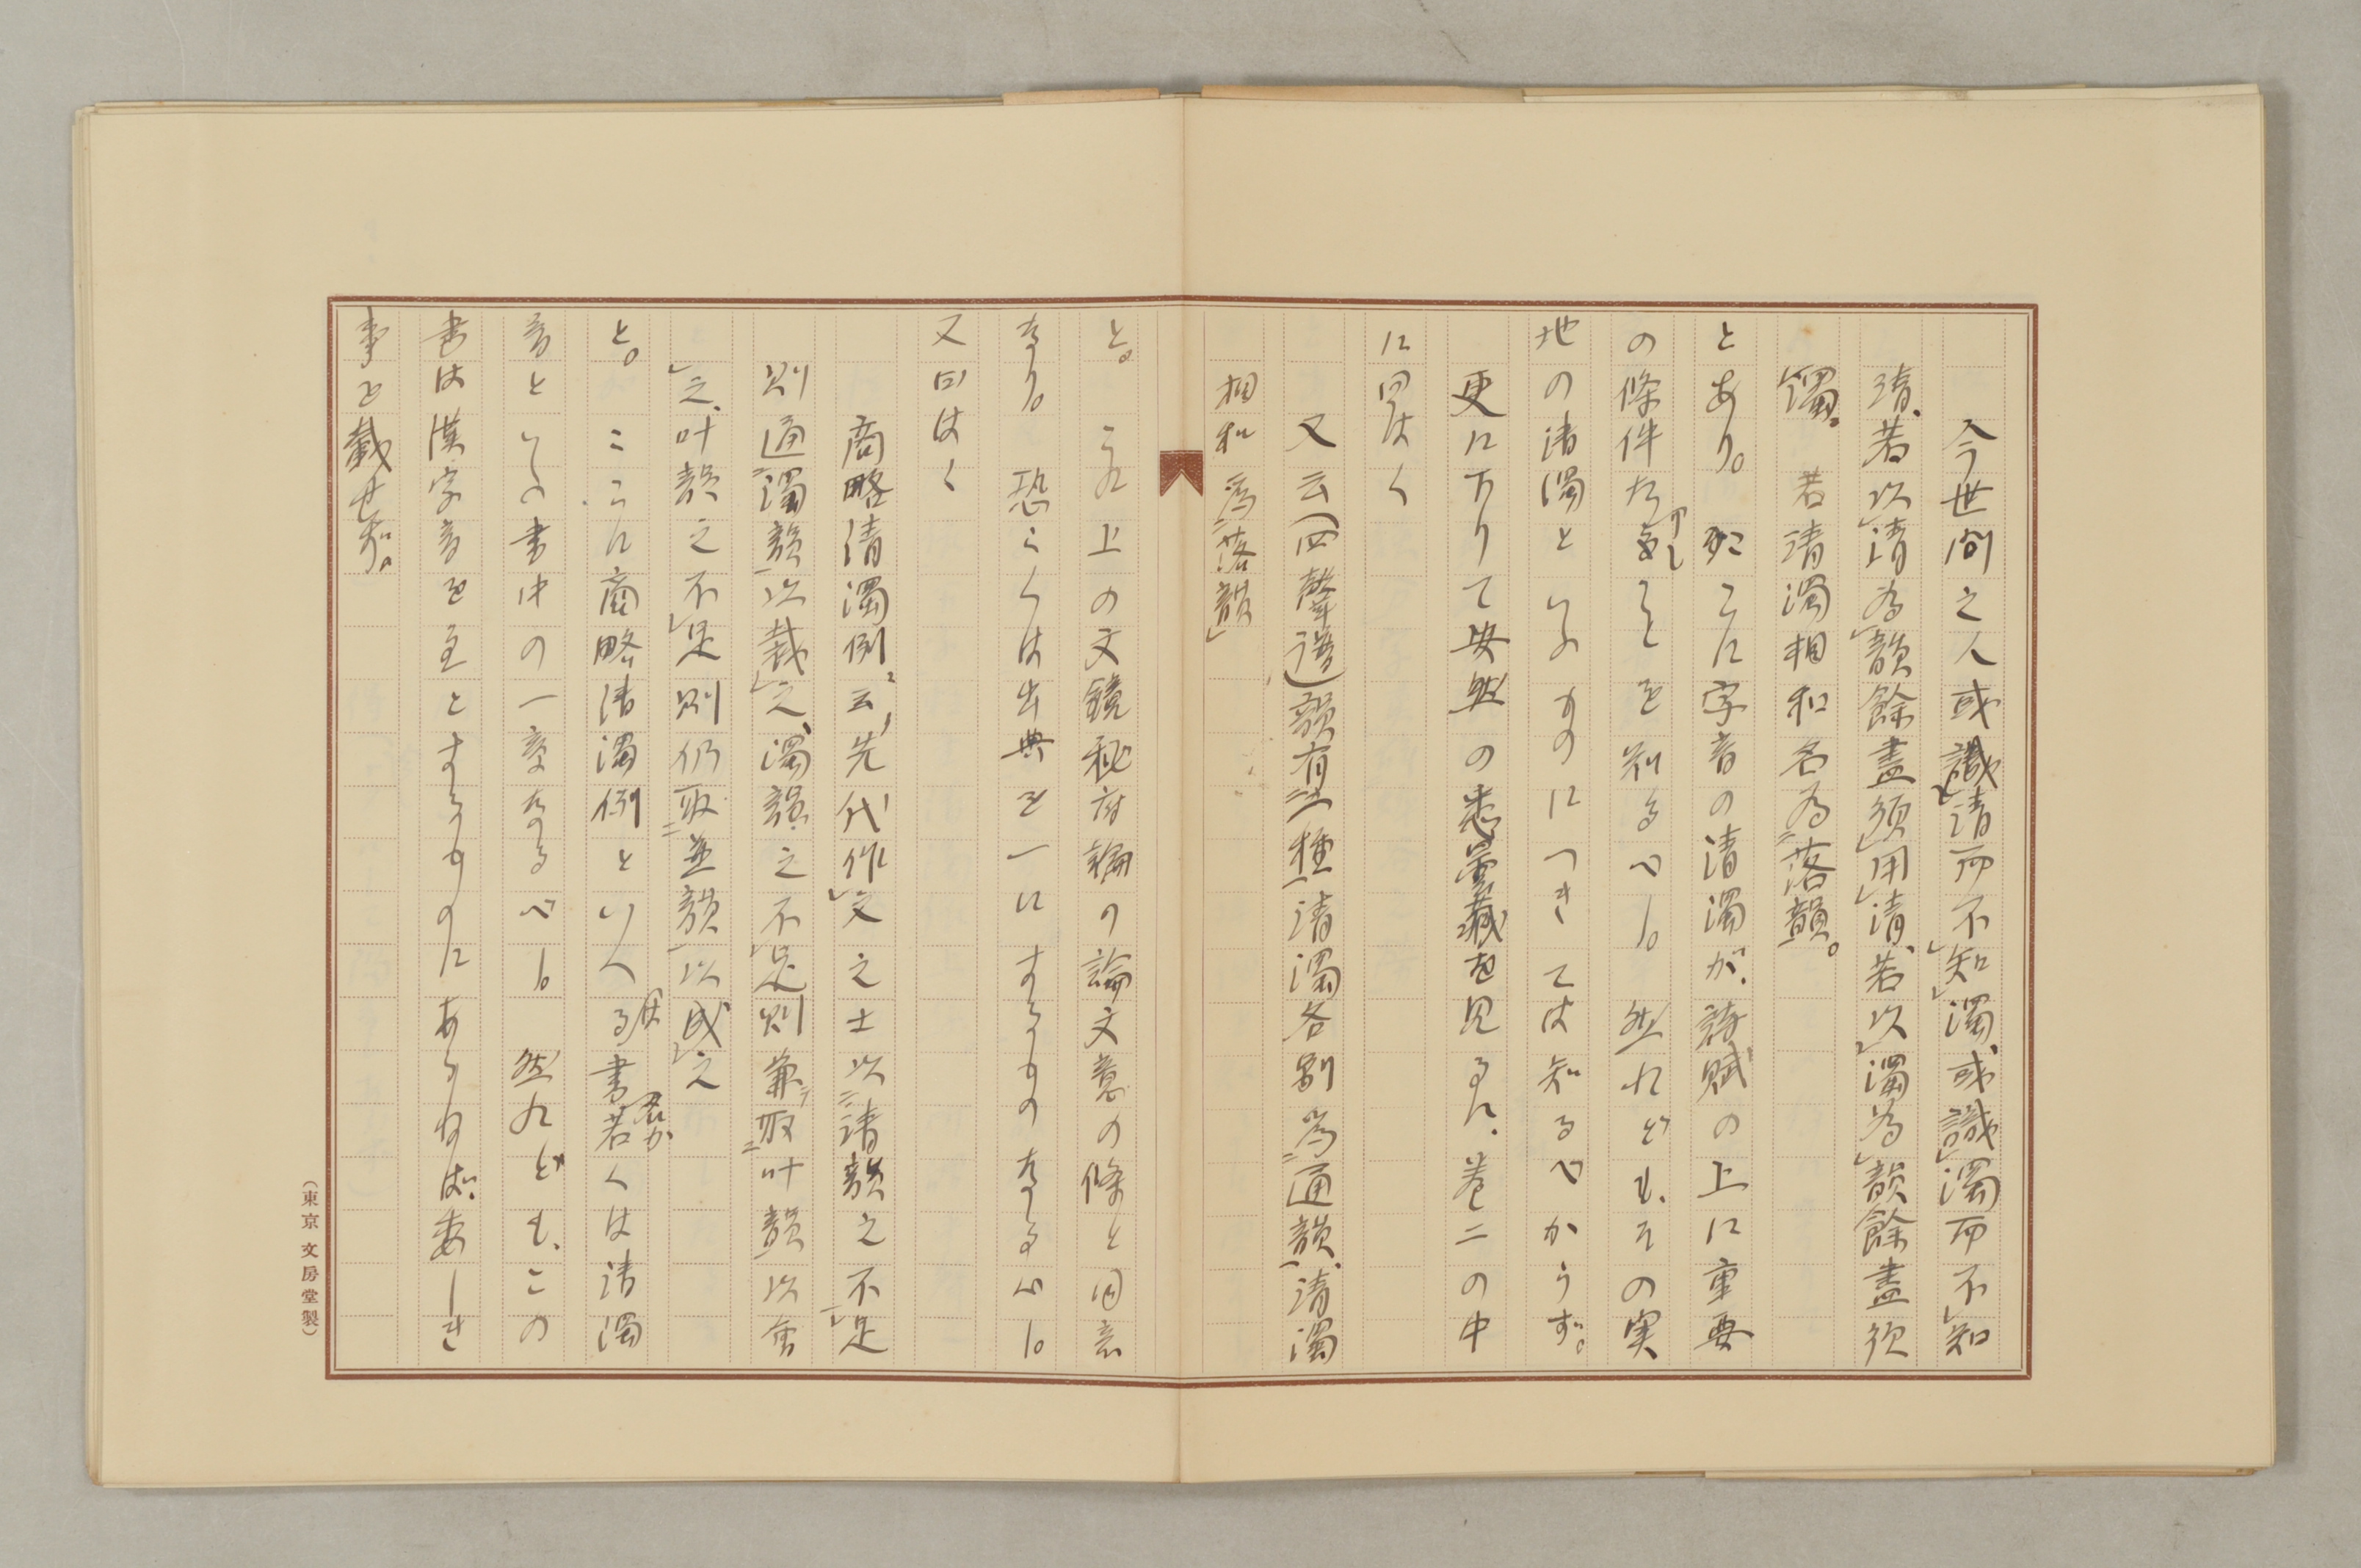 今世間之人或識清而不知濁、或識濁而不知
清、若以清為韻餘盡須用清、若以濁為韻餘盡須
濁。若清濁相和名為落韻。
とあり。これに字音の清濁が、詩賦の上に重要
の條件たりしことを判るべし。然れども、その実
地の清濁といふものにつきては知るべからず。
更に下りて安然の悉曇藏を見るに、巻二の中
に曰はく
又云(四聲譜)韻有二種、清濁各別為通韻、清濁
相和為落韻
と。これ上の文鏡秘府論の論文意の條と同意
なり。恐らくは出典を一にするものなるべし。
又曰はく
商略清濁例云、先代作文之士以清韻之不足
則通濁韻以裁之、濁韻之不足則兼取叶韻以會
之、叶韻之不足則仍取並韻以成之
と。ここに商略清濁例といへるは書名か若くは清濁
音といふ書中の一章なるべし。然れども、この
書は漢字音を主とするものにあらねば、委しき
事を載せず。
(東京文房堂製)